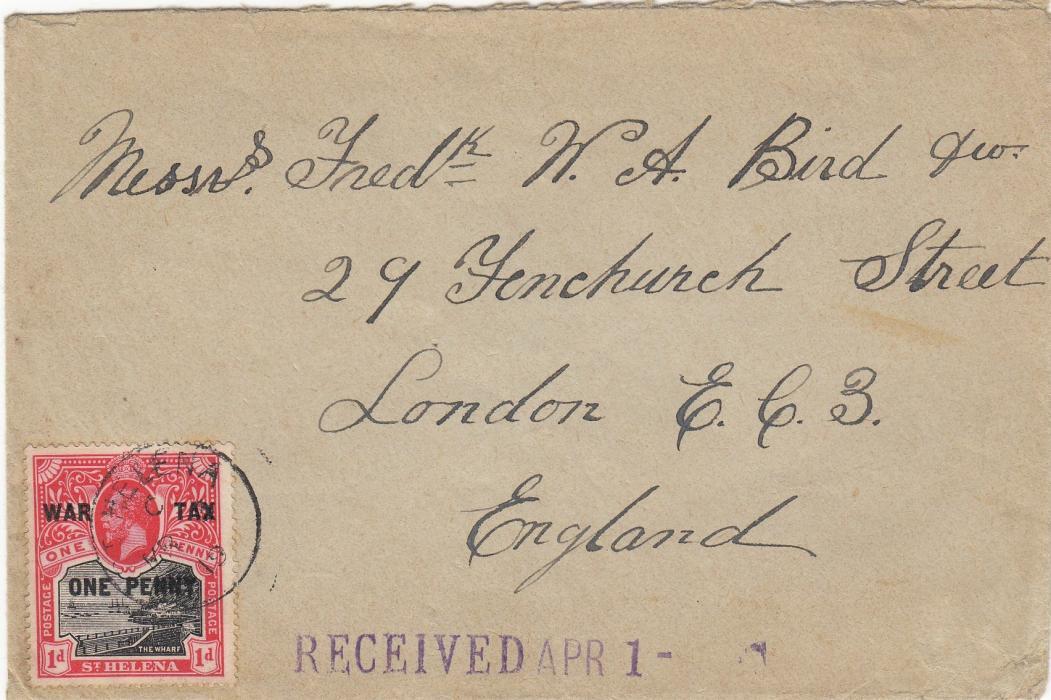 Messrs. Fredk W. A. Bird & Co.
29 Fenchurch Street
London E. C. 3.
England
WAR TAX
ONE PENNY
ONE PENNY
POSTAGE
POSTAGE
THE WHARF
1d ST. HELENA 1d
HELENA
C
19
RECEIVED APR 1-